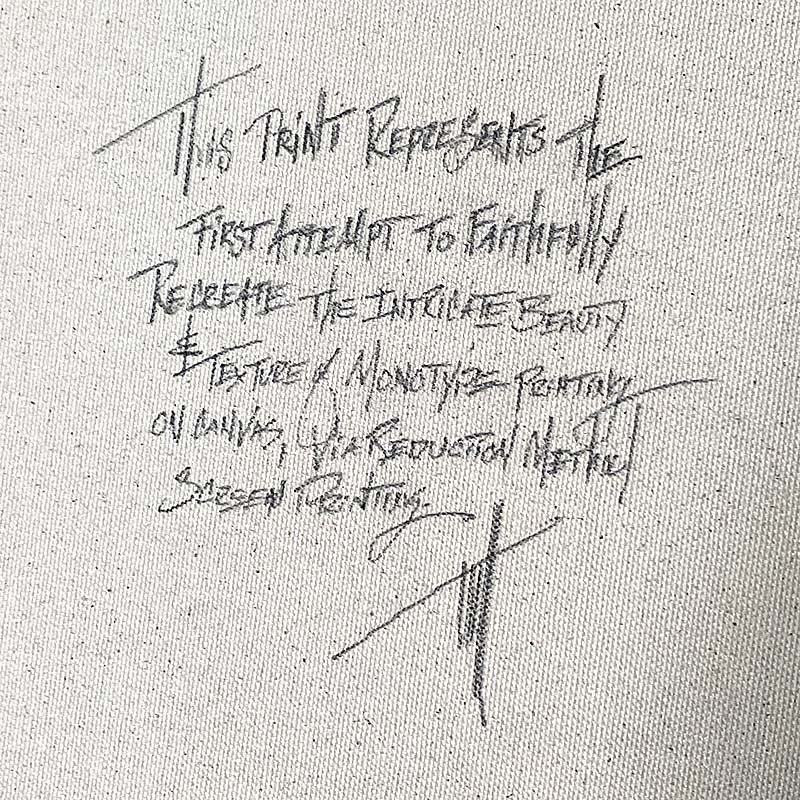 This Print Represents the
First Attempt to Faithfully
Recreate the Intricate Beauty
& Texture of Monotype Printing
on canvas, Via Reduction Method
Screen Printing